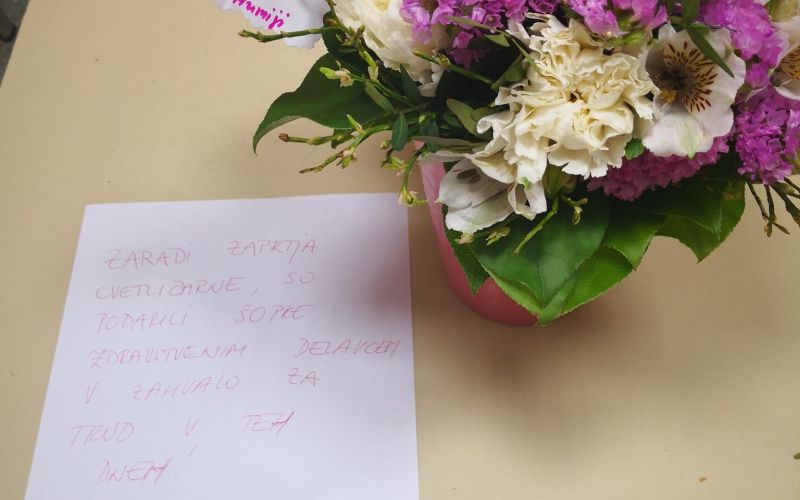 ZARADI ZAPRTJA
CVETLIČARNE, SO
PODARILI ŠOPKE
ZDRAVSTVENIM DELAVCEM
V ZAHVALO ZA
TRUD V TEH
DNEH!